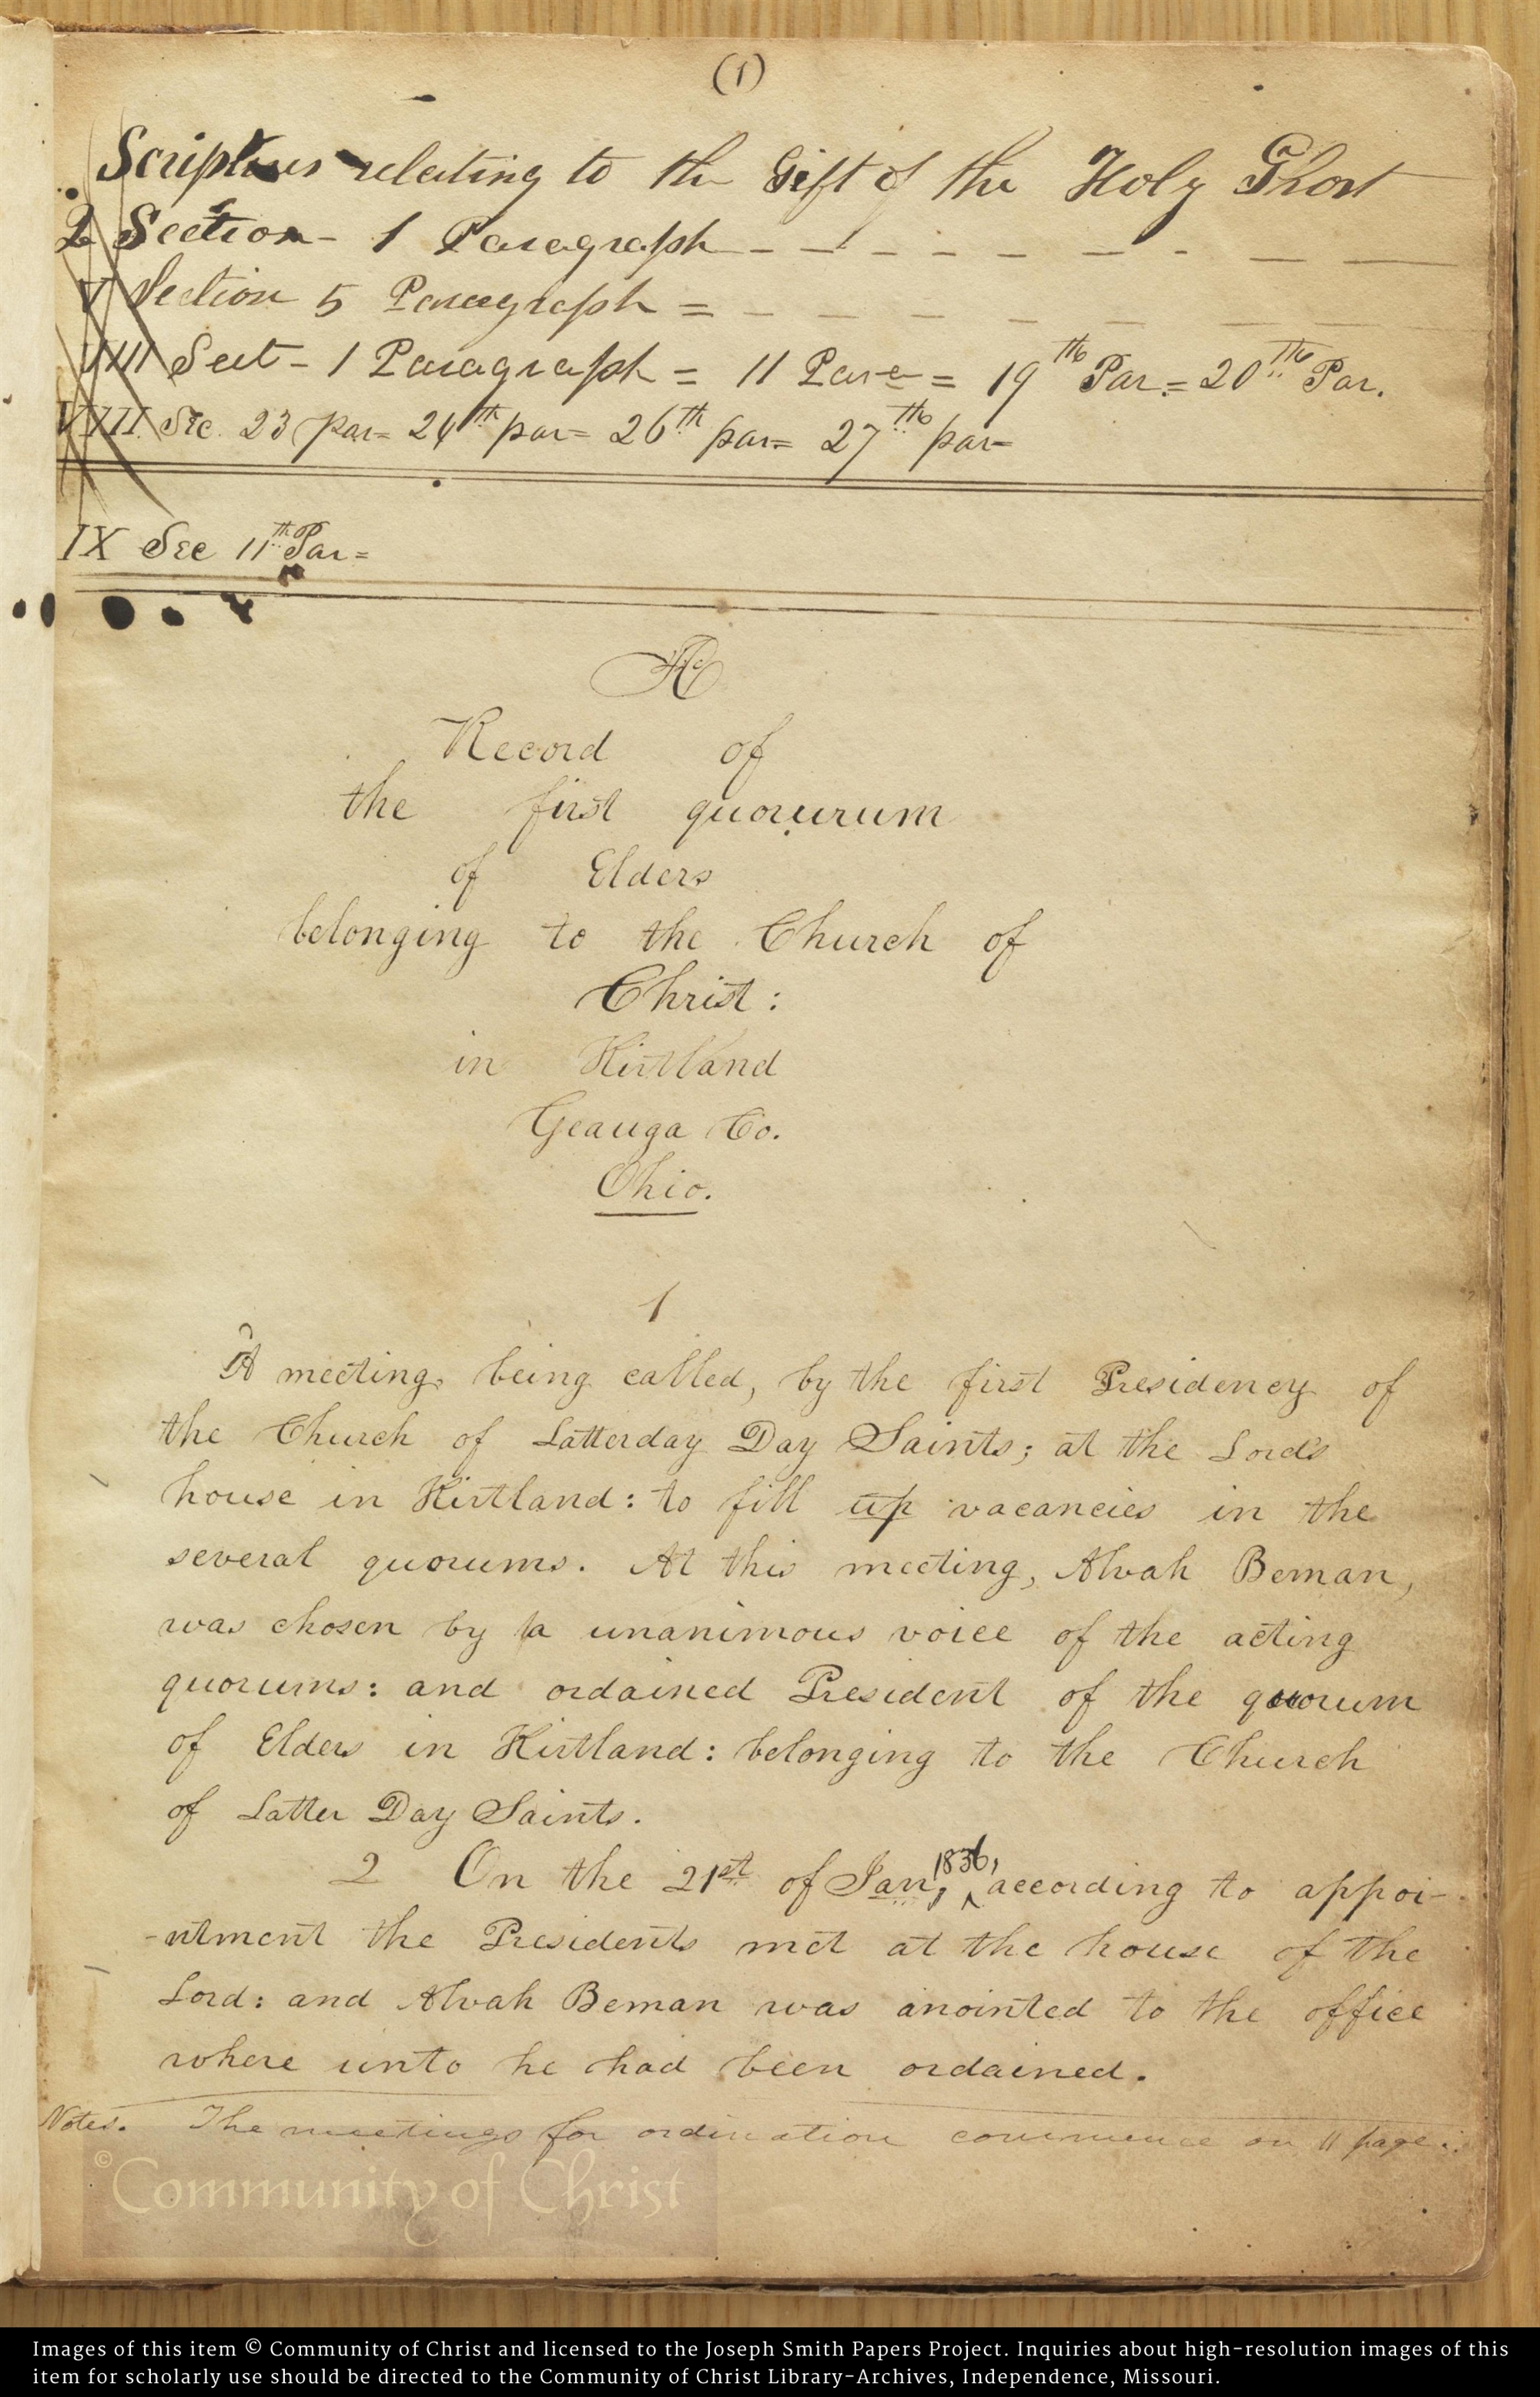 (1)
Scriptures relating to the Gift of the Holy Ghost
2 Section - 1 Paragraph - - - - - - - - - -
V Section 5 Paragraph = - - - - - - - -
VIII Sect - 1 Paragraph = 11 Para = 19th Par. = 20th Par.
VIII Sec. 23 par= 24th par= 26th par= 27th par=
IX Sec 11th Par=
A
Record of
the first quorurum
of Elders
belonging to the Church of
Christ:
in Kirtland
Geauga Co.
Ohio.
1
A meeting being called, by the first Presidency of
the Church of Latterday Day Saints; at the Lord's
house in Kirtland: to fill up vacancies in the
several quorums. At this meeting, Alvah Beman,
was chosen by a unanimous voice of the acting
quorums: and ordained President of the quorum
of Elders in Kirtland: belonging to the Church
of Latter Day Saints.
2 On the 21st of Jan, 1836, according to appoi-
-ntment the Presidents met at the house of the
Lord: and Alvah Beman was anointed to the office
where unto he had been ordained.
Notes. The meetings for ordination commence on 11 page.
© Community of Christ
Images of this item © Community of Christ and licensed to the Joseph Smith Papers Project. Inquiries about high-resolution images of this
item for scholarly use should be directed to the Community of Christ Library-Archives, Independence, Missouri.